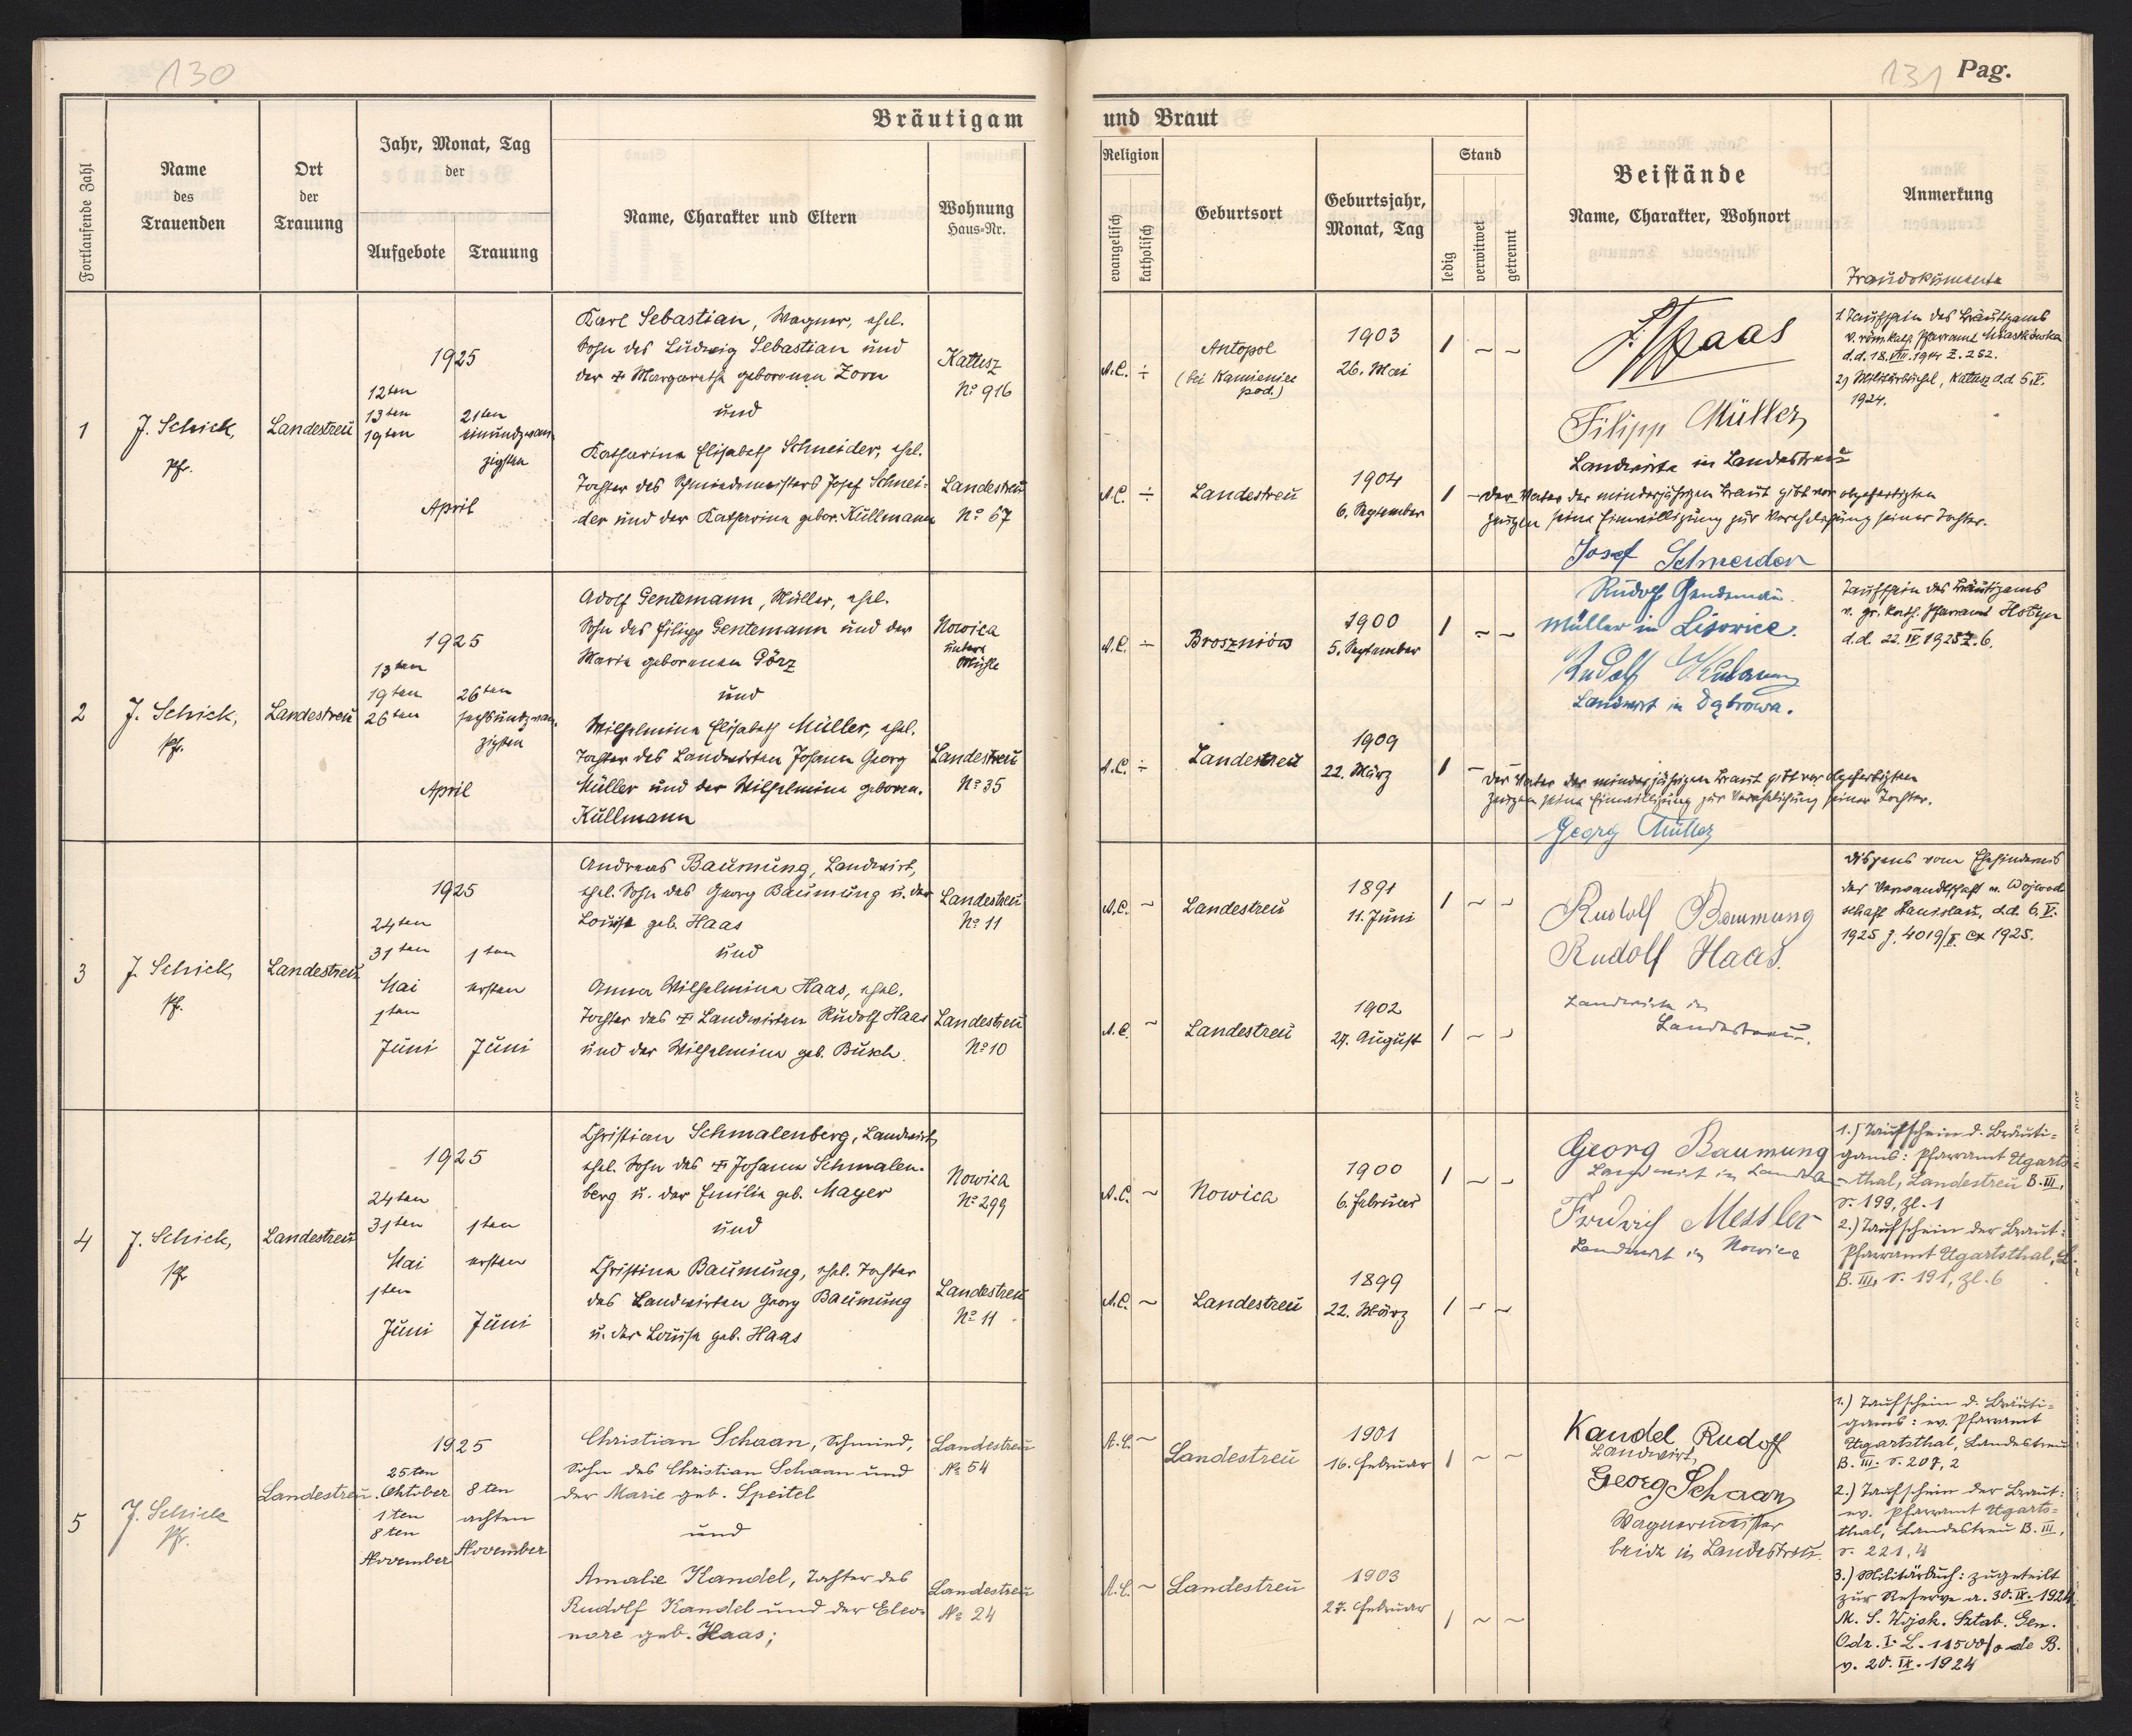 130
131 Pag.
Bräutigam
und Braut
Fortlaufende Zahl
Name
des
Trauenden
Ort
der
Trauung
Jahr, Monat, Tag
der
Aufgebote
Trauung
Name, Charakter und Eltern
Wohnung
Haus-Nr.
Religion
evangelisch
katholisch
Geburtsort
Geburtsjahr,
Monat, Tag
Stand
ledig
verwitwet
getrennt
Beistände
Name, Charakter, Wohnort
Anmerkung
Traudokumente
1
J. Schick,
Pfr.
Landestreu
1925
12ten
13ten
19ten
21ten
einundzwan
zigsten
April
Karl Sebastian, Wagner, ehel.
Sohn des Ludwig Sebastian und
der Margaretha geborenen Zorn
und
Katharina Elisabeth Schneider, ehel.
Tochter des Schmiedemeisters Josef Schnei-
der und der Katharina gebor. Küllmann
Kałusz
No 916
Landestreu
No 67
A.C. ÷
Antopol
(bei Kamieniec
pod.)
1903
26. Mai
1 ~ ~
A.C. ÷
Landestreu
1904
6. September
1
Haas
Filipp Müller
Landwirte in Landestreu
Der Vater der minderjährigen Braut gibt vor abgefertigten
Zeugen seine Einwilligung zur Verehelichung seiner Tochter.
Josef Schneider
1. Taufschein des Bräutigams
v. röm. kath. Pfarramt
d.d. 18. VIII. 1914 Z. 262.
2) Militärbüchel, Kałusz d.d. 5. V.
1924.
2
J. Schick,
Pfr.
Landestreu
1925
13ten
19ten
26ten
26ten
sechsundzwan-
zigsten
April
Adolf Gentemann, Müller, ehel.
Sohn des Filipp Gentemann und der
Maria geborenen Görz
und
Wilhelmina Elisabeth Müller, ehel.
Tochter des Landwirten Johann Georg
Müller und der Wilhelmina geboren.
Küllmann
Nowica
untere
Mühle
Landestreu
No 35
A.C. ÷
Broszniów
1900
5. September
1 ~ ~
A.C. ÷
Landestreu
1909
22. März
1
Rudolf
Müller in Lisowice.
Rudolf
Landwirt in Dąbrowa.
Der Vater der minderjährigen Braut gibt vor abgefertigten
Zeugen seine Einwilligung zur Verehelichung seiner Tochter.
Georg Müller
Taufschein des Bräutigams
v. gr. kath. Pfarramt Hołyn
d.d. 22. IV. 1925 Z. 6.
3
J. Schick,
Pf.
Landestreu
1925
24ten
31ten
Mai
1ten
Juni
1ten
ersten
Juni
Andreas Baumung, Landwirt,
ehel. Sohn des Georg Baumung u. der
Louise geb. Haas
und
Anna Wilhelmina Haas, ehel.
Tochter des Landwirten Rudolf Haas
und der Wilhelmina geb. Busch.
Landestreu
No 11
Landestreu
No 10
A.C. ~
Landestreu
1891
11. Juni
1 ~ ~
A.C. ~
Landestreu
1902
27. August
1 ~ ~
Rudolf Baumung
Rudolf Haas.
Landwirte in
Landestreu.
Dispens vom Ehehindernis
der Verwandtschaft v. Wojwod
schaft Stanislau, d.d. 6. V.
1925 Z. 4019/V. ex 1925.
4
J. Schick,
Pfr
Landestreu
1925
24ten
31ten
Mai
1ten
Juni
1ten
ersten
Juni
Christian Schmalenberg, Landwirt,
ehel. Sohn des Johann Schmalen-
berg u. der Emilie geb. Mayer
und
Christina Baumung, ehel. Tochter
des Landwirten Georg Baumung
u. der Louise geb. Haas
Nowica
No 299
Landestreu
No 11
A.C. ~
Nowica
1900
6. Februar
1 ~ ~
A.C. ~
Landestreu
1899
22. März
1 ~ ~
Georg Baumung
Landwirt in
Messler
Landwirt in Nowica
1.) Taufschein d. Bräuti-
gams: Pfarramt Ugarts
-thal, Landestreu B. III,
S. 199, Zl. 1
2.) Taufschein der Braut:
Pfarramt Ugartsthal, L.
B. III, S. 191, Zl. 6
5
J. Schick
Pfr.
Landestreu
1925
25ten
Oktober
1ten
8ten
November
8ten
achten
November
Christian Schaan, Schmied,
Sohn des Christian Schaan und
der Marie geb. Speitel
und
Amalie Kandel, Tochter des
Rudolf Kandel und der Eleo-
nore geb. Haas;
Landestreu
No 54
Landestreu
No 24
A.C. ~
Landestreu
1901
16. Februar
1 ~ ~
A.C. ~
Landestreu
1903
27. Februar
1 ~ ~
Kandel Rudolf
Landwirt,
Georg Schaan
Wagnermeister
beide in Landestreu.
1.) Taufschein d. Bräuti-
gams: ev. Pfarramt
Ugartsthal, Landestreu
B. III. S. 207, 2
2.) Taufschein der Braut:
ev. Pfarramt Ugarts-
thal, Landestreu B. III,
S. 221, 4
3.) Militärbuch: zugeteilt
zur Reserve a. 30. IX. 1924
M. S. Wojsk. Sztab. Gen.
Odz. I. L. 11500/o de B.
v. 20. IX. 1924